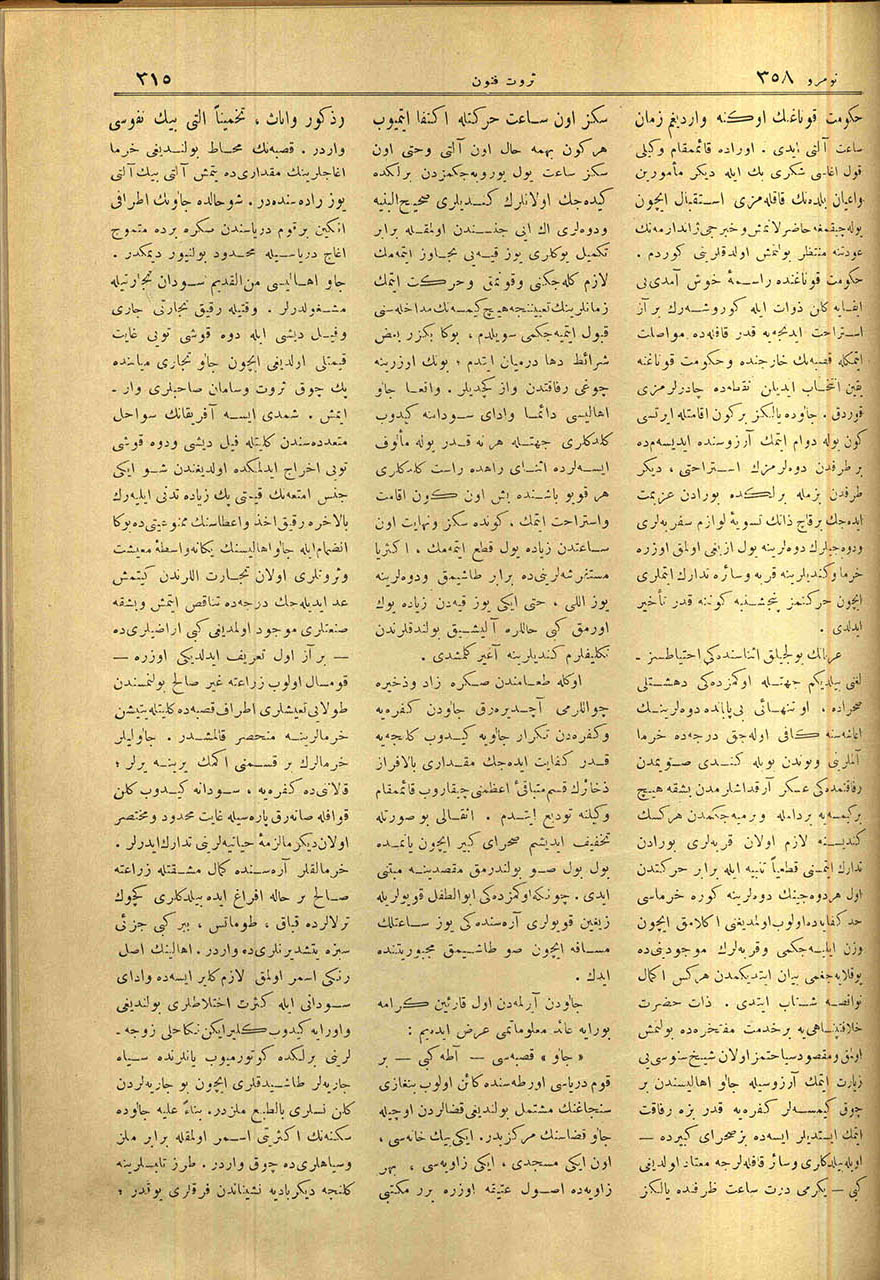 نومرو ٣٥٨
ثروت فنون
٣١٥
حكومت قوناغنك اوكنه وارديغم زمان
ساعت آلتى ايدى . اوراده قائممقام وكيلى
قول اغاسى شكرى بك ايله ديكر مأمورين
واعيان بلده‌نك قافله‌مزى استقبال ايچون
يوله چيقمغه حاضرلانمش وخبرجى ژاندارمه‌نك
عودتنه منتظر بولنمش اولدقلرينى كوردم .
حكومت قوناغنده راسمهٔ خوش آمدى‌يى
ايفايه كلن ذوات ايله كوروشه‌رك براز
استراحت ايدنجه‌يه قدر قافله‌ده مواصلت
ايتمكله قصبه‌نك خارجنده وحكومت قوناغنه
يقين انتخاب ايديلن نقطه‌ده چادرلرمزى
قوردق . جاوده يالكز بركون اقامتله ايرتسى
كون يوله دوام ايتمك آرزوسنده ايديسه‌م‌ده
بر طرفدن دوه‌لرمزك استراحتى ، ديكر
طرفدن بزمله برلكده بورادن عزيمت
ايده‌جك برقاچ ذاتك تسويهٔ لوازم سفريه‌لرى
ودوه‌جيلرك دوه‌لرينه يول ازيغى اولمق اوزره
خرما وكنديلرينه قربه وسائره تدارك ايتملرى
ايچون حركتمز پنجشنبه كوننه قدر تأخير
ايدلدى .
عربلرك يولجيلق اثناسنده‌كى احتياطسز ـ
لغنى بيلديكم جهتله اوكمزده‌كى دهشتلى
صحراده ، او تنهائى بى‌پايانده دوه‌لرينك
اعاشه‌سنه كافى اوله‌جق درجه‌ده خرما
آلملرينى وبوندن بويله كندى صويمدن
رفاقتمده‌كى عسكر آرقداشلرمدن بشقه هيچ
بركيمسه‌يه بردامله ويرميه‌جكمدن هركسك
كنديسنه لازم اولان قربه‌لرى بورادن
تدارك ايتمسنى قطعياً تنبيه ايله برابر حركتدن
اول هر دوه‌جينك دوه‌لرينه كوره خرماسى
حد كفايه‌ده اولوب اولمديغنى اكلامق ايچون
وزن ايليه‌جكمى وقربه‌لرك موجودينى‌ده
يوقلايه‌جغمى بيان ايتديكمدن هركس اكمال
نواقصه شتاب ايتدى . ذات حضرت
خلافتپناهى‌يه برخدمت مفتخره‌ده بولنمش
اولمق ومقصود سياحتمز اولان شيخ سنوسى‌يى
زيارت ايتمك آرزوسيله جاو اهاليسندن بر
چوق كيمسه‌لر كفره‌يه قدر بزه رفاقت
ايتمك ايستديلر ايسه‌ده بز صحراى كبيرده —
اويله بيلدكلرى وسائر قافله‌لرجه معتاد اولديغى
كبى — يكرمى درت ساعت ظرفنده يالكز
سكز اون ساعت حركتله اكتفا ايتميوب
هركون بهمه حال اون آلتى وحتى اون
سكز ساعت يول يوريه‌جكمزدن برلكده
كيده‌جك اولانلرك كنديلرى صحيح البنيه
ودوه‌لرى اك ايى جنسندن اولمقله برابر
تكميل يوكلرى يوز قيه‌يى تجاوز ايتمه‌مك
لازم كله‌جكنى وقونمق وحركت ايتمك
زمانلرينك تعييننجه هيچ كيمسه‌نك مداخله‌سنى
قبول ايتميه‌جكمى سويلدم ، بوكا بكزر بعض
شرائط دها درميان ايتدم ؛ بونك اوزرينه
چوغى رفاقتدن واز كچديلر . واقعا جاو
اهاليسى دائما واداى سودانه كيدوب
كلدكلرى جهتله هر نه قدر يوله مألوف
ايسه‌لرده اثناى راهده راست كلدكلرى
هر قويو باشنده بش اون كون اقامت
واستراحت ايتمك ، كونده سكز ونهايت اون
ساعتدن زياده يول قطع ايتمه‌مك ، اكثريا
مستفرشه‌لرينى‌ده برابر طاشيمق ودوه‌لرينه
يوز اللى ، حتى ايكى يوز قيه‌دن زياده يوك
اورمق كبى حاللره آليشيق بولندقلرندن
تكليفلرم كنديلرينه آغير كلمشدى .
اوكله طعامندن صكره زاد وذخيره
چواللرمى آچديره‌رق جاودن كفره‌يه
وكفره‌دن تكرار جاويه كيدوب كلنجه‌يه
قدر كفايت ايده‌جك مقدارى بالافراز
ذخائرك قسم متباقئ اعظمنى چيقاروب قائممقام
وكيلنه توديع ايتدم . اثقالى بو صورتله
تخفيف ايديشم صحراى كبير ايچون يانمده
بول بول صو بولندرمق مقصدينه مبتنى
ايدى . چونكه اوكمزده‌كى ابوالطفل قويولريله
زيغين قويولرى آره‌سنده‌كى يوز ساعتلك
مسافه ايچون صو طاشيمق مجبوريتنده
ايدك .
جاودن آيرلمه‌دن اول قارئين كرامه
بورايه عائد معلوماتمى عرض ايده‌يم :
« جاو » قصبه‌سى — آطه كبى — بر
قوم درياسى اورطه‌سنده كائن اولوب بنغازى
سنجاغنك مشتمل بولنديغى قضالردن اوجيله
جاو قضاسنك مركزيدر . ايكى بيك خانه‌سى ،
اون ايكى مسجدى ، ايكى زاويه‌سى ، بهر
زاويه‌ده اصول عتيقه اوزره برر مكتبى
رذكور واناث ، تخميناً التى بيك نفوسى
واردر . قصبه‌نك محاط بولنديغى خرما
اغاجلرينك مقدارى‌ده يتمش آلتى بيك آلتى
يوز راده‌سنده‌در . شو حالده جاونك اطرافى
انكين بر قوم درياسندن سكره برده متموج
اغاج درياسيله محدود بولنيور ديمكدر .
جاو اهاليسى من‌القديم سودان تجارتيله
مشغولدرلر . وقتيله رقيق تجارتى جارى
وفيل ديشى ايله دوه قوشى تويى غايت
قيمتلى اولديغى ايچون جاو تجارى مياننده
پك چوق ثروت وسامان صاحبلرى وار ـ
ايمش . شمدى ايسه آفريقانك سواحل
متعدده‌سندن كليتله فيل ديشى ودوه قوشى
تويى اخراج ايدلمكده اولديغندن شو ايكى
جنس امتعه‌نك قيمتى پك زياده تدنى ايليه‌رك
بالاخره رقيق اخذ واعطاسنك ممنوعيتى‌ده بوكا
انضمام ايله جاو اهاليسنك يكانه واسطهٔ معيشت
وثروتلرى اولان تجارت اللرندن كيتمش
عد ايديله‌جك درجه‌ده تناقص ايتمش وبشقه
صنعتلرى موجود اولمديغى كبى اراضيلرى‌ده
— براز اول تعريف ايدلديكى اوزره —
قومسال اولوب زراعته غير صالح بولنمسندن
طولايى تعيشلرى اطراف قصبه‌ده كليتله يتيشن
خرمالرينه منحصر قالمشدر . جاوليلر
خرمالرك بر قسمنى اكمك يرينه يرلر ؛
قالانى‌ده كفره‌يه ، سودانه كيدوب كلن
قوافله صاته‌رق پاره‌سيله غايت محدود ومختصر
اولان ديكر مالزمهٔ حياتيه‌لرينى تدارك ايدرلر .
خرمالقلر آره‌سنده كمال مشقتله زراعته
صالح بر حاله افراغ ايده بيلدكلرى كچوك
ترلالرده قباق ، طوماتس ، ببر كبى جزئى
سبزه يتشديرنلرى‌ده واردر . اهالينك اصل
رنكى اسمر اولمق لازم كلير ايسه‌ده واداى
سودانى ايله كثرت اختلاطلرى بولنديغى
واورايه كيدوب كليرايكن نكاحلى زوجه ـ
لرينى برلكده كوتورميوب يانلرنده سياه
جاريه‌لر طاشيدقلرى ايچون بو جاريه‌لردن
كلن نسلرى بالطبع ملزدر . بناءً عليه جاوده
سكنه‌نك اكثريتى اسمر اولمقله برابر ملز
وسياهلرى‌ده چوق واردر . طرز تلبسلرينه
كلنجه ديكر باديه نشيناندن فرقلرى يوقدر ؛